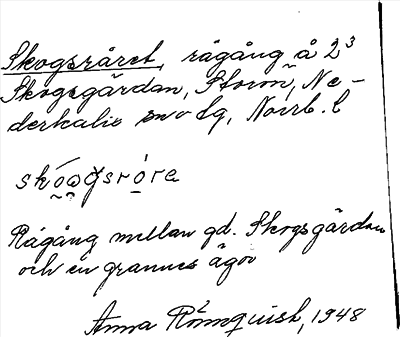 Skogsrået, rågång å 2³
Skogsgårdan, Storön, Ne-
derkalix sn o tg, Norrb. l
skóogsróra
Rågång mellan gd. Skogsgårdan
och en grannes ägor
Anna Rönnquist, 1948